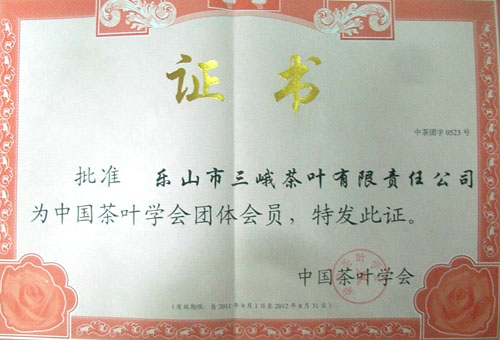 证书
中茶团字0523号
批准 乐山市三峨茶叶有限责任公司
为中国茶叶学会团体会员，特发此证。
中国茶叶学会
(有效期限：自2011年9月1日至2012年8月31日)